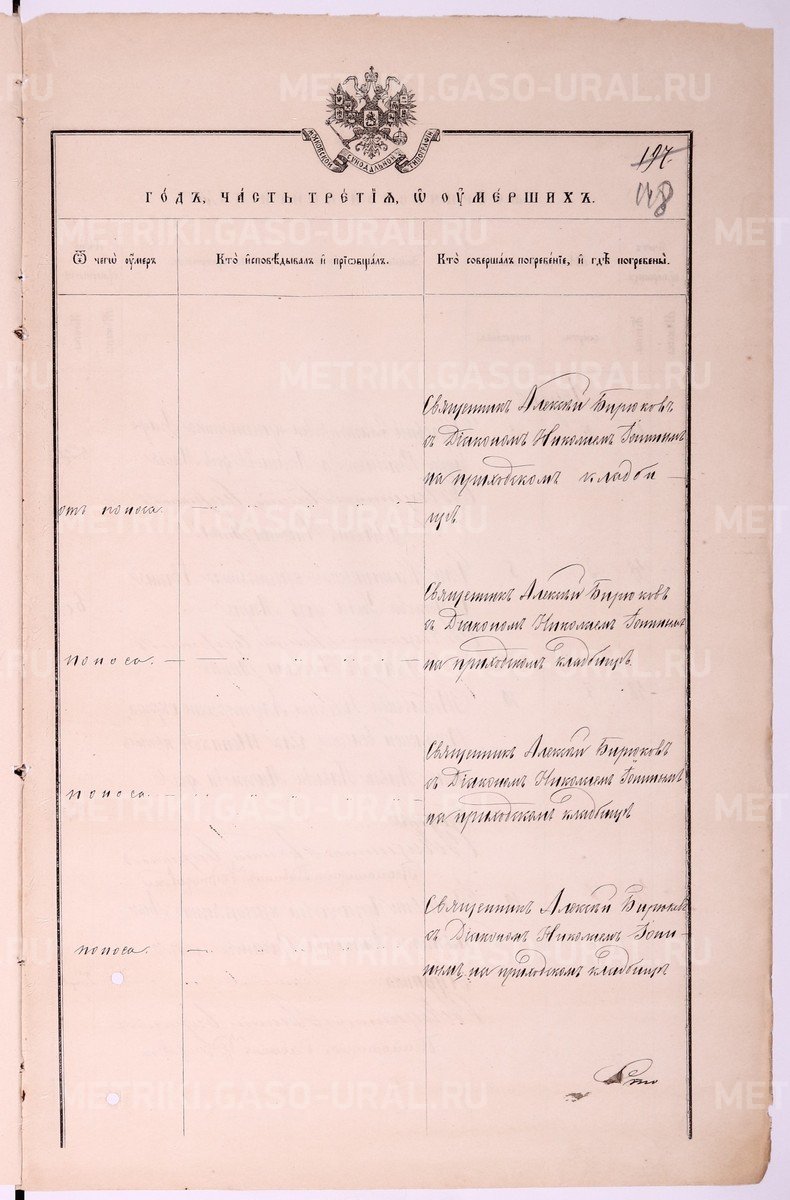 METRIKI.GASO-URAL.RU
МОСКОВСКОЙ СѴНОДАЛЬНОЙ ТИПОГРАФІИ
197.
148
ГО́ДЪ, ЧА́СТЬ ТРЕ́ТІѦ, Ѽ ОУ҆МЕ́РШИХЪ.
Ѿ чегѡ̀ оу҆́меръ
Кто̀ и҆сповѣ́дывалъ и҆ прїѡбща́лъ.
Кто̀ соверша́лъ погребе́нїе, и҆ гдѣ̀ погребены̀.
Священникъ Алексѣй Бирюковъ
съ Діакономъ Николаемъ
на приходскомъ кладби-
щѣ
отъ поноса.
Священникъ Алексѣй Бирюковъ
съ Діакономъ Николаемъ
на приходскомъ кладбищѣ.
поноса.
Священникъ Алексѣй Бирюковъ
съ Діакономъ Николаемъ
на приходскомъ кладбищѣ
поноса.
Священникъ Алексѣй Бирюковъ
съ Діакономъ Николаемъ
на приходскомъ кладбищѣ
поноса.